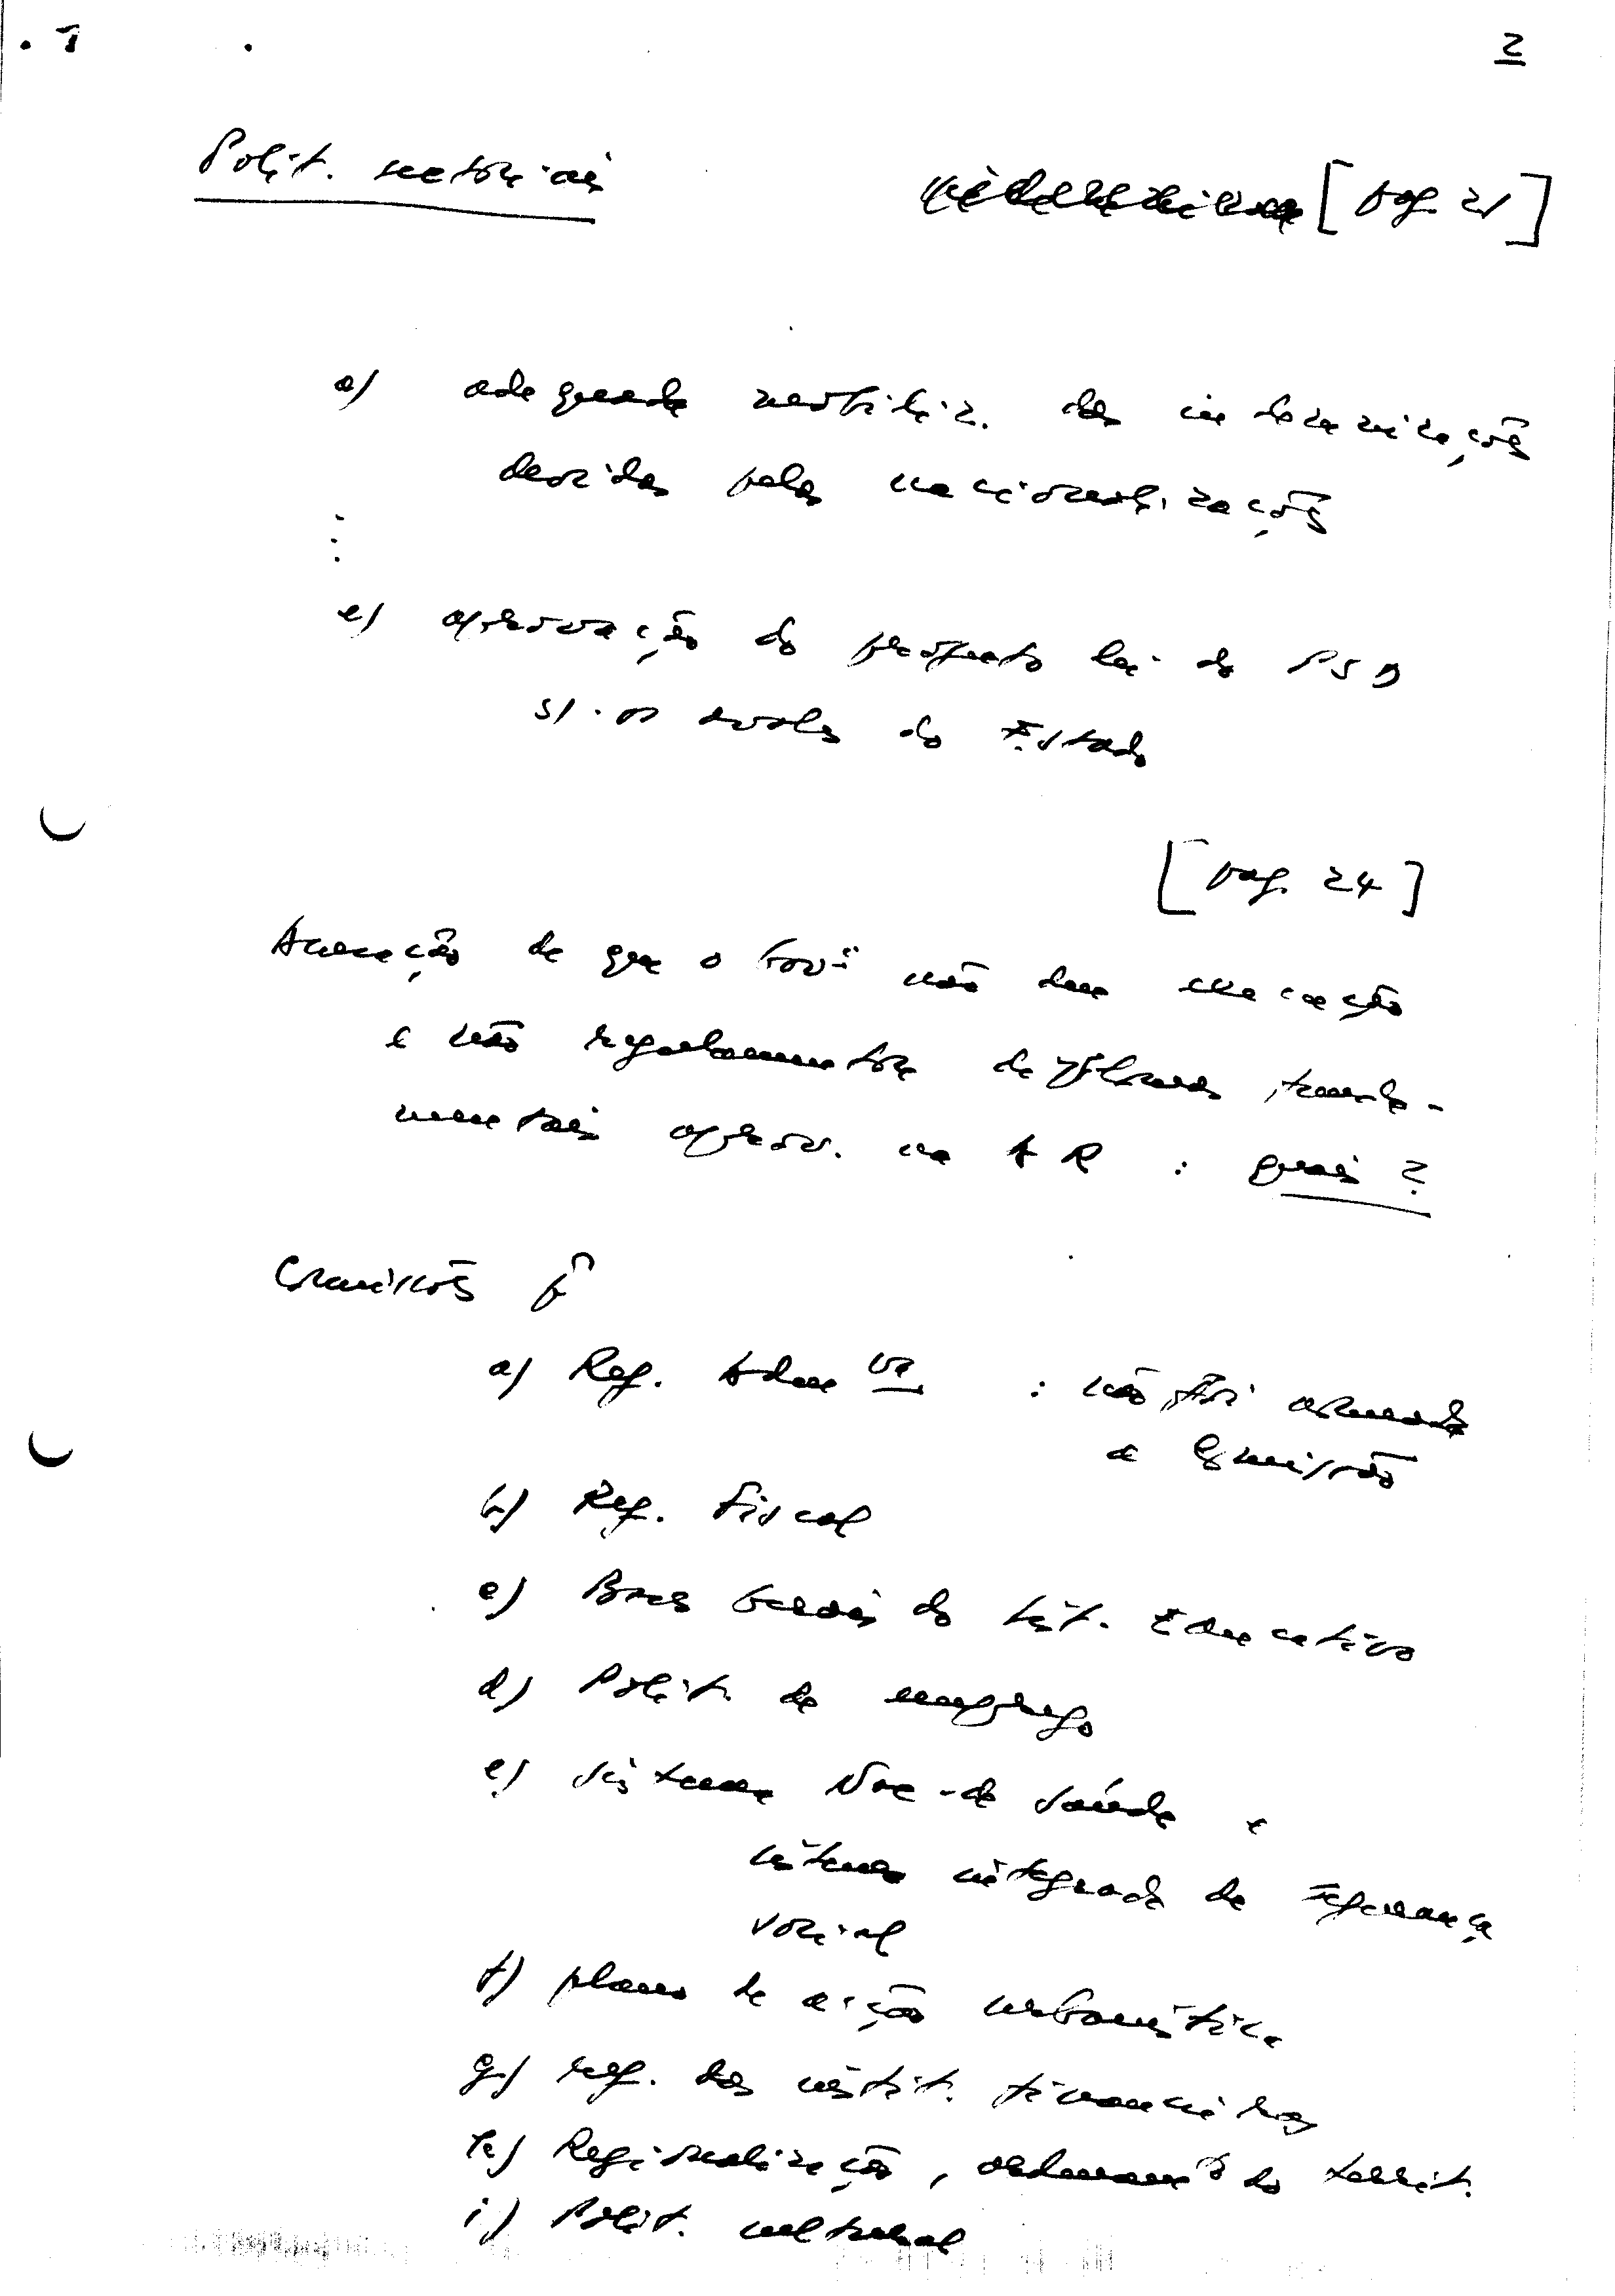 2
Polit. sectoriais [pag. 21]
a) adequada mobiliz. das indemnizações
devidas pelas nacionalizações
e) aprovação do projecto lei do PSD
s/. os avales do Estado
[pag. 24]
Acusação de que o Govº não deu execução
e não regulamentou diplomas funda-
mentais aprov. na AR : quais ?
Comissões p/
a) Ref. Admva : não foi nomeada
a Comissão
b) Ref. Fiscal
c) Bases Gerais do Sist. Educativo
d) Polit. de emprego
e) Sistema Nac. de Saúde e
sistema integrado de Segurança
social
f) plano de acção urbanística
g) ref. das instit. financeiras
h) Regionalização, ordenamº do territ.
i) Polit. cultural